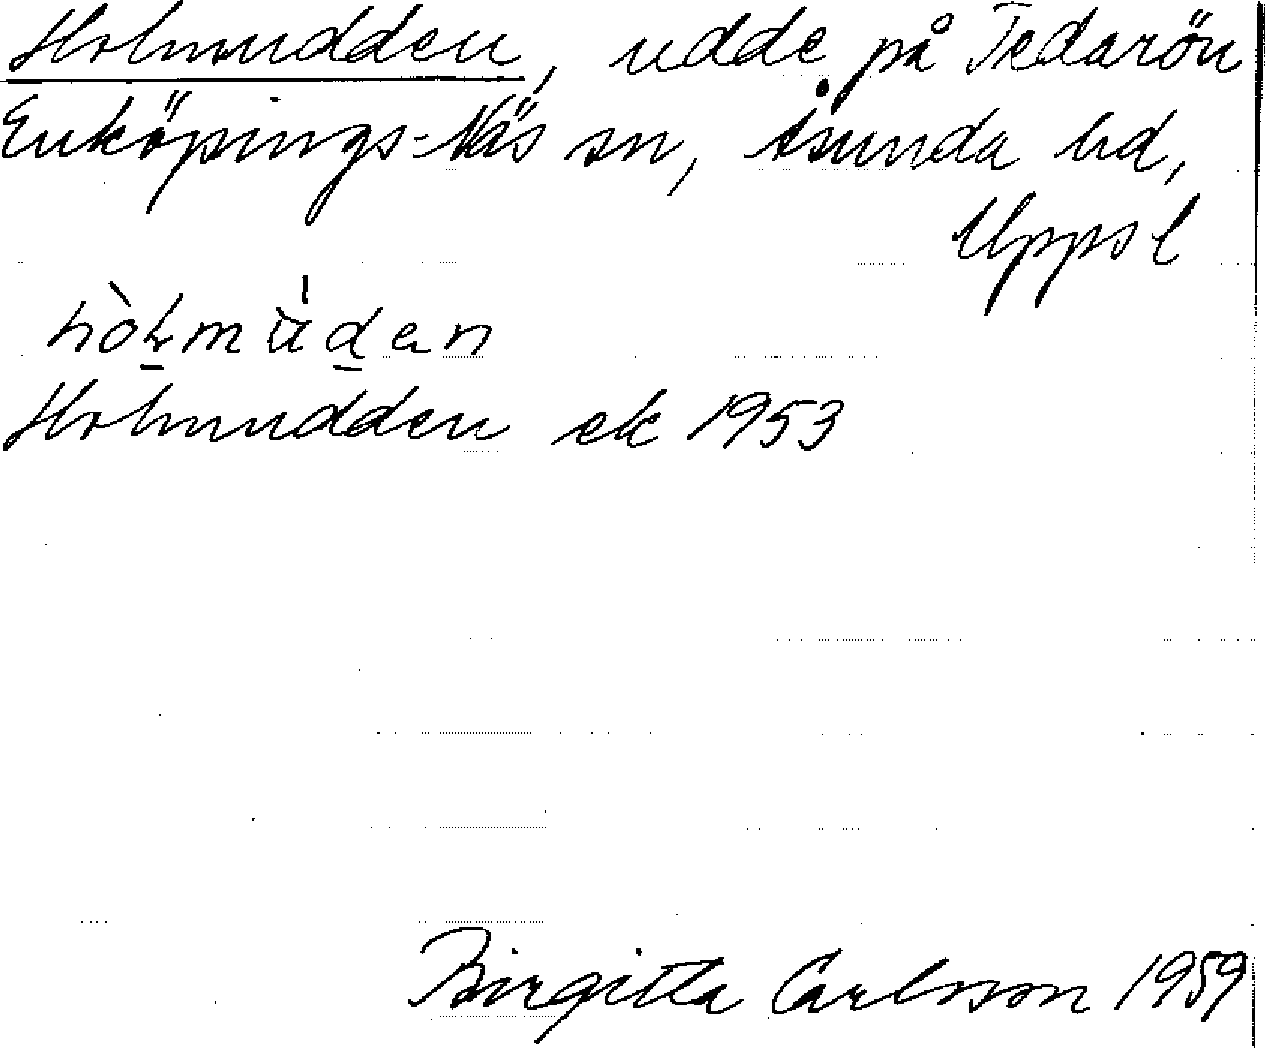 Holmudden, udde på Tedarön
Enköpings-Näs sn, Åsunda hd,
Uppsl
Holmudden ek 1953
Birgitta Carlsson 1959